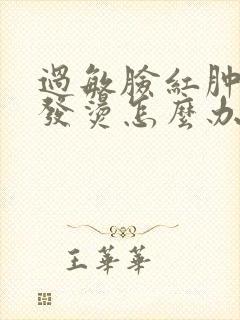 過敏臉紅肿
發燙怎麼办
王華華